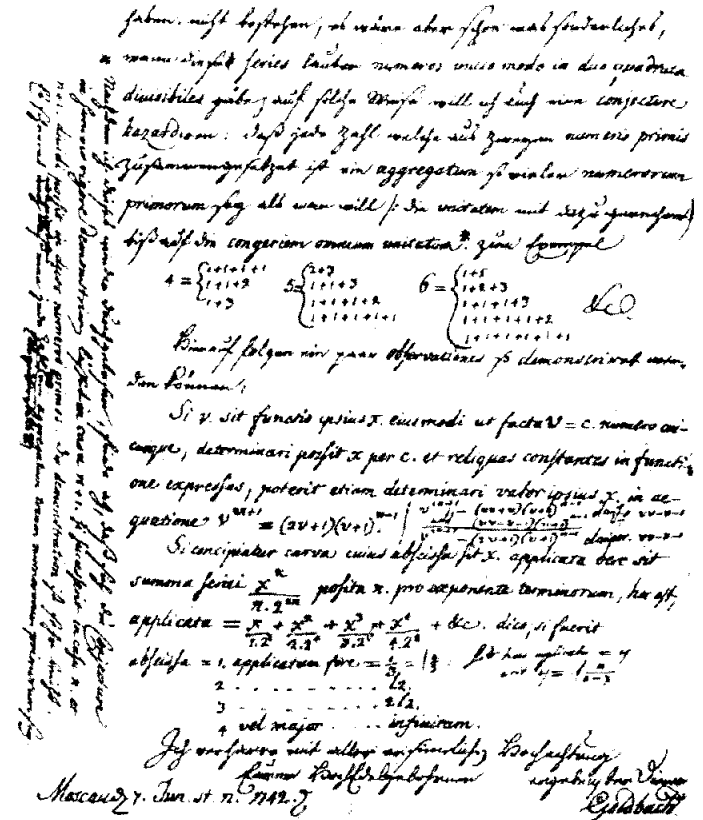 haben, nicht bestehen, es wäre aber schon was sonderliches,
wann eine series lauter numeros unico modo in duo quadrata
divisibiles gäbe, auf solche Weise will ich auch eine conjecture
hazardiren: daß jede Zahl welche aus zweyen numeris primis
zusammengesetzet ist ein aggregatum so vieler numerorum
primorum sey als man will /: die unitatem mit dazu gerechnet)
biß auf die congeriem omnium unitatum * zum Exempel
4 = { 1+1+1+1 5 = { 2+3 6 = { 1+5
1+1+2 1+1+3 1+2+3
1+3 1+1+1+2 1+1+1+3
1+1+1+1+1 1+1+1+1+2
1+1+1+1+1+1 &c.
Hierauf folgen ein paar observationes so demonstriret wer-
den können:
Si v. sit functio ipsius x. eiusmodi ut facta v = c. numero cui-
cunque, determinari possit x per c. et reliquas constantes in functi-
one expressas, poterit etiam determinari valor ipsius x. in ae-
quatione v^{2n+1} = (2v+1)(v+1)^{n-1}
Si concipiatur curva cuius abscissa sit x. applicata vero sit
summa seriei x^n / n.2^{2n} posita n. pro exponente terminorum, hoc est,
applicata = x/1.2^2 + x^2/2.2^4 + x^3/3.2^6 + x^4/4.2^8 + &c. dico, si fuerit
abscissa = 1, applicatam fore = l 4/3
2 . . . . . . . . l2.
3 . . . . . . . . 2l2.
4 vel major . . . . infinitam.
Ich verharre mit aller Hochachtung
Eurer HochEdelgebohrnen ergebenster Diener
Moscau d. 7. Jun. st. n. 1742. Goldbach
* Nachdem ich dieses wieder durchgelesen, finde ich, daß sich die Conjecture
in summo rigore demonstriren lässet in casu n+1. si successerit in casu n. et
n+1. dividi possit in duos numeros primos. Die demonstration ist sehr leicht.
Es scheinet eine jede Zahl ein aggregatum trium numerorum primorum sey.